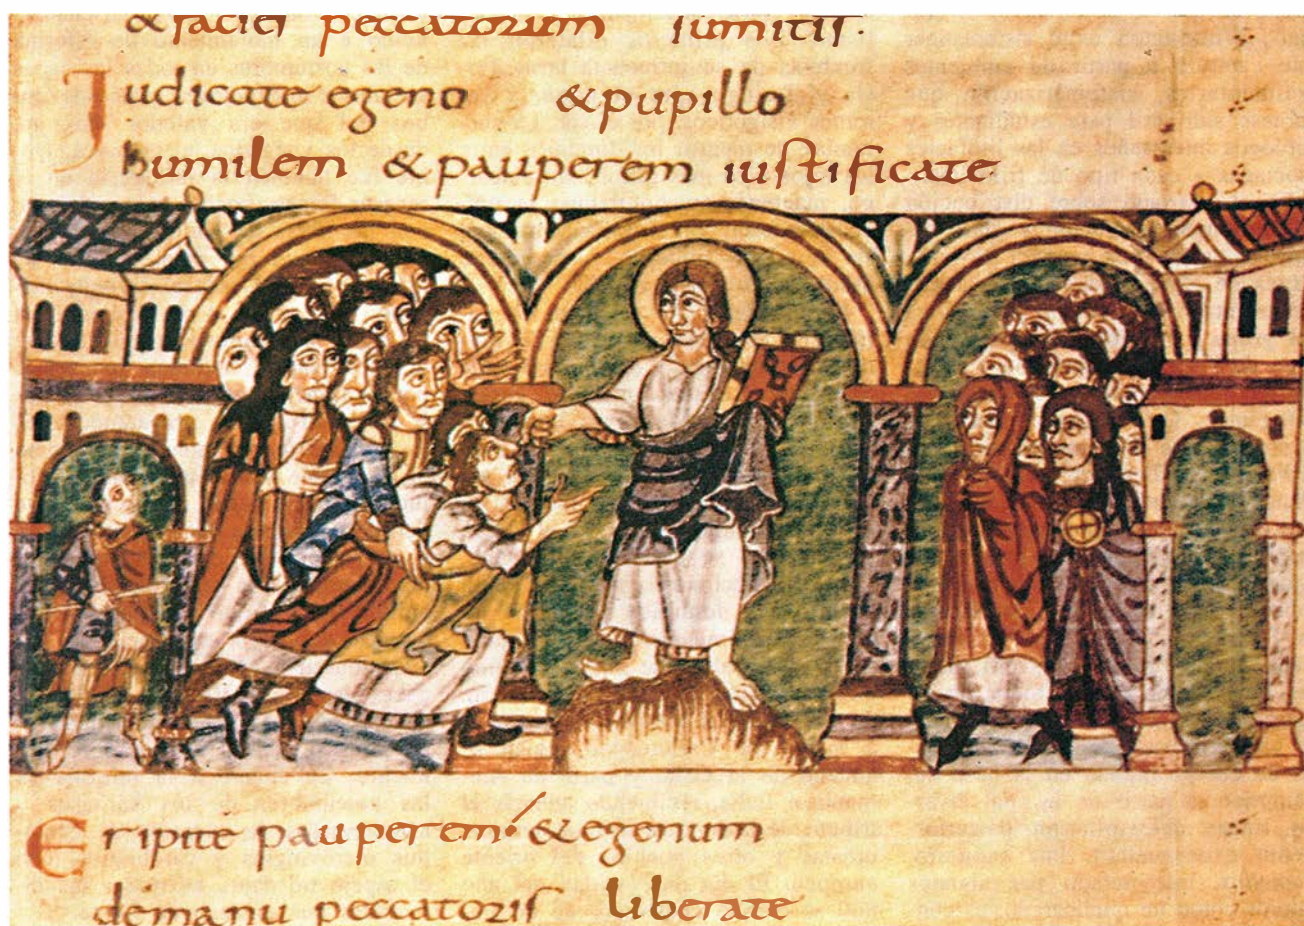 & faciei peccatorum sumitis.
Judicate egeno & pupillo
humilem & pauperem iustificate
Eripite pauperem & egenum
demanu peccatoris liberate